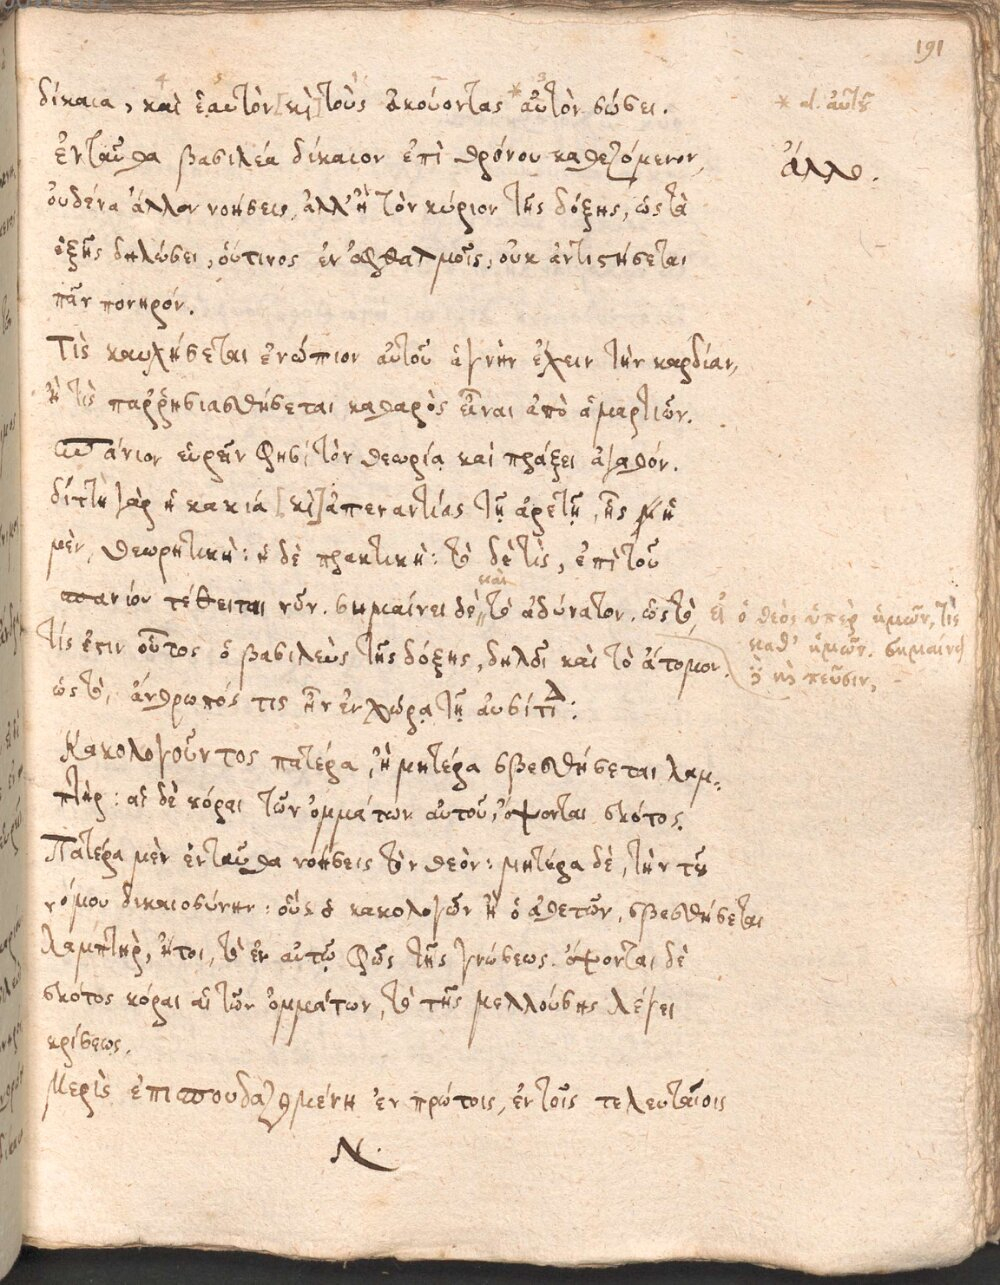 191
δίκαια, καὶ ἑαυτὸν [κὶ] τοὺς ἀκούοντας * αὐτὸν σώσει.
* al. αὐτοῦ
ἐνταῦθα βασιλέα δίκαιον ἐπὶ θρόνου καθεζόμενον,
ἄλλο.
οὐδένα ἄλλον νοήσεις, ἀλλ' ἢ τὸν κύριον τῆς δόξης, ὡς τὰ
ἑξῆς δηλώσει, οὗτινος ἐν ὀφθαλμοῖς, οὐκ ἀντιστήσεται
πᾶν πονηρόν.
Τὶς καυχήσεται ἐνώπιον αὐτοῦ ἁγνὴν ἔχειν τὴν καρδίαν,
ἢ τὶς παῤῥησιασθήσεται καθαρὸς εἶναι ἀπὸ ἁμαρτιῶν.
Σπάνιον εὑρεῖν φησὶ τὸν θεωρίᾳ καὶ πράξει ἀγαθόν.
διττὴ γὰρ ἡ κακία [κὶ] ἀπεναντίας τῇ ἀρετῇ, ἧς ἡ
μὲν, θεωρητικὴ: ἡ δὲ πρακτικὴ: τὸ δὲ τὶς, ἐπὶ τοῦ
σπανίου τέθειται νῦν. σημαίνει δὲ καὶ τὸ ἀδύνατον. ὡς τὸ, εἰ ὁ θεὸς ὑπὲρ ἡμῶν, τὶς
καθ' ἡμῶν. σημαίνει
δὲ κὶ πεῦσιν,
τίς ἐστιν οὗτος ὁ βασιλεὺς τῆς δόξης, δηλοῖ καὶ τὸ ἄτομον.
ὡς τὸ, ἄνθρωπός τις ἦν ἐν χώρᾳ τῇ αὐσίτιδι:
Κακολογοῦντος πατέρα, ἢ μητέρα σβεσθήσεται λαμ-
πτήρ: αἱ δὲ κόραι τῶν ὀμμάτων αὐτοῦ, ὄψονται σκότος.
Πατέρα μὲν ἐνταῦθα νοήσεις τὸν θεόν: μητέρα δὲ, τὴν τοῦ
νόμου δικαιοσύνην: οὓς ὁ κακολογῶν ἢ ὁ ἀθετῶν, σβεσθήσεται
λαμπτὴρ, ἤτοι, τὸ ἐν αὐτῷ φῶς τῆς γνώσεως. ὄψονται δὲ
σκότος κόραι αἱ τῶν ὀμμάτων, τὸ τῆς μελλούσης λέγει
κρίσεως.
Μερὶς ἐπισπουδαζομένη ἐν πρώτοις, ἐν τοῖς τελευταίοις